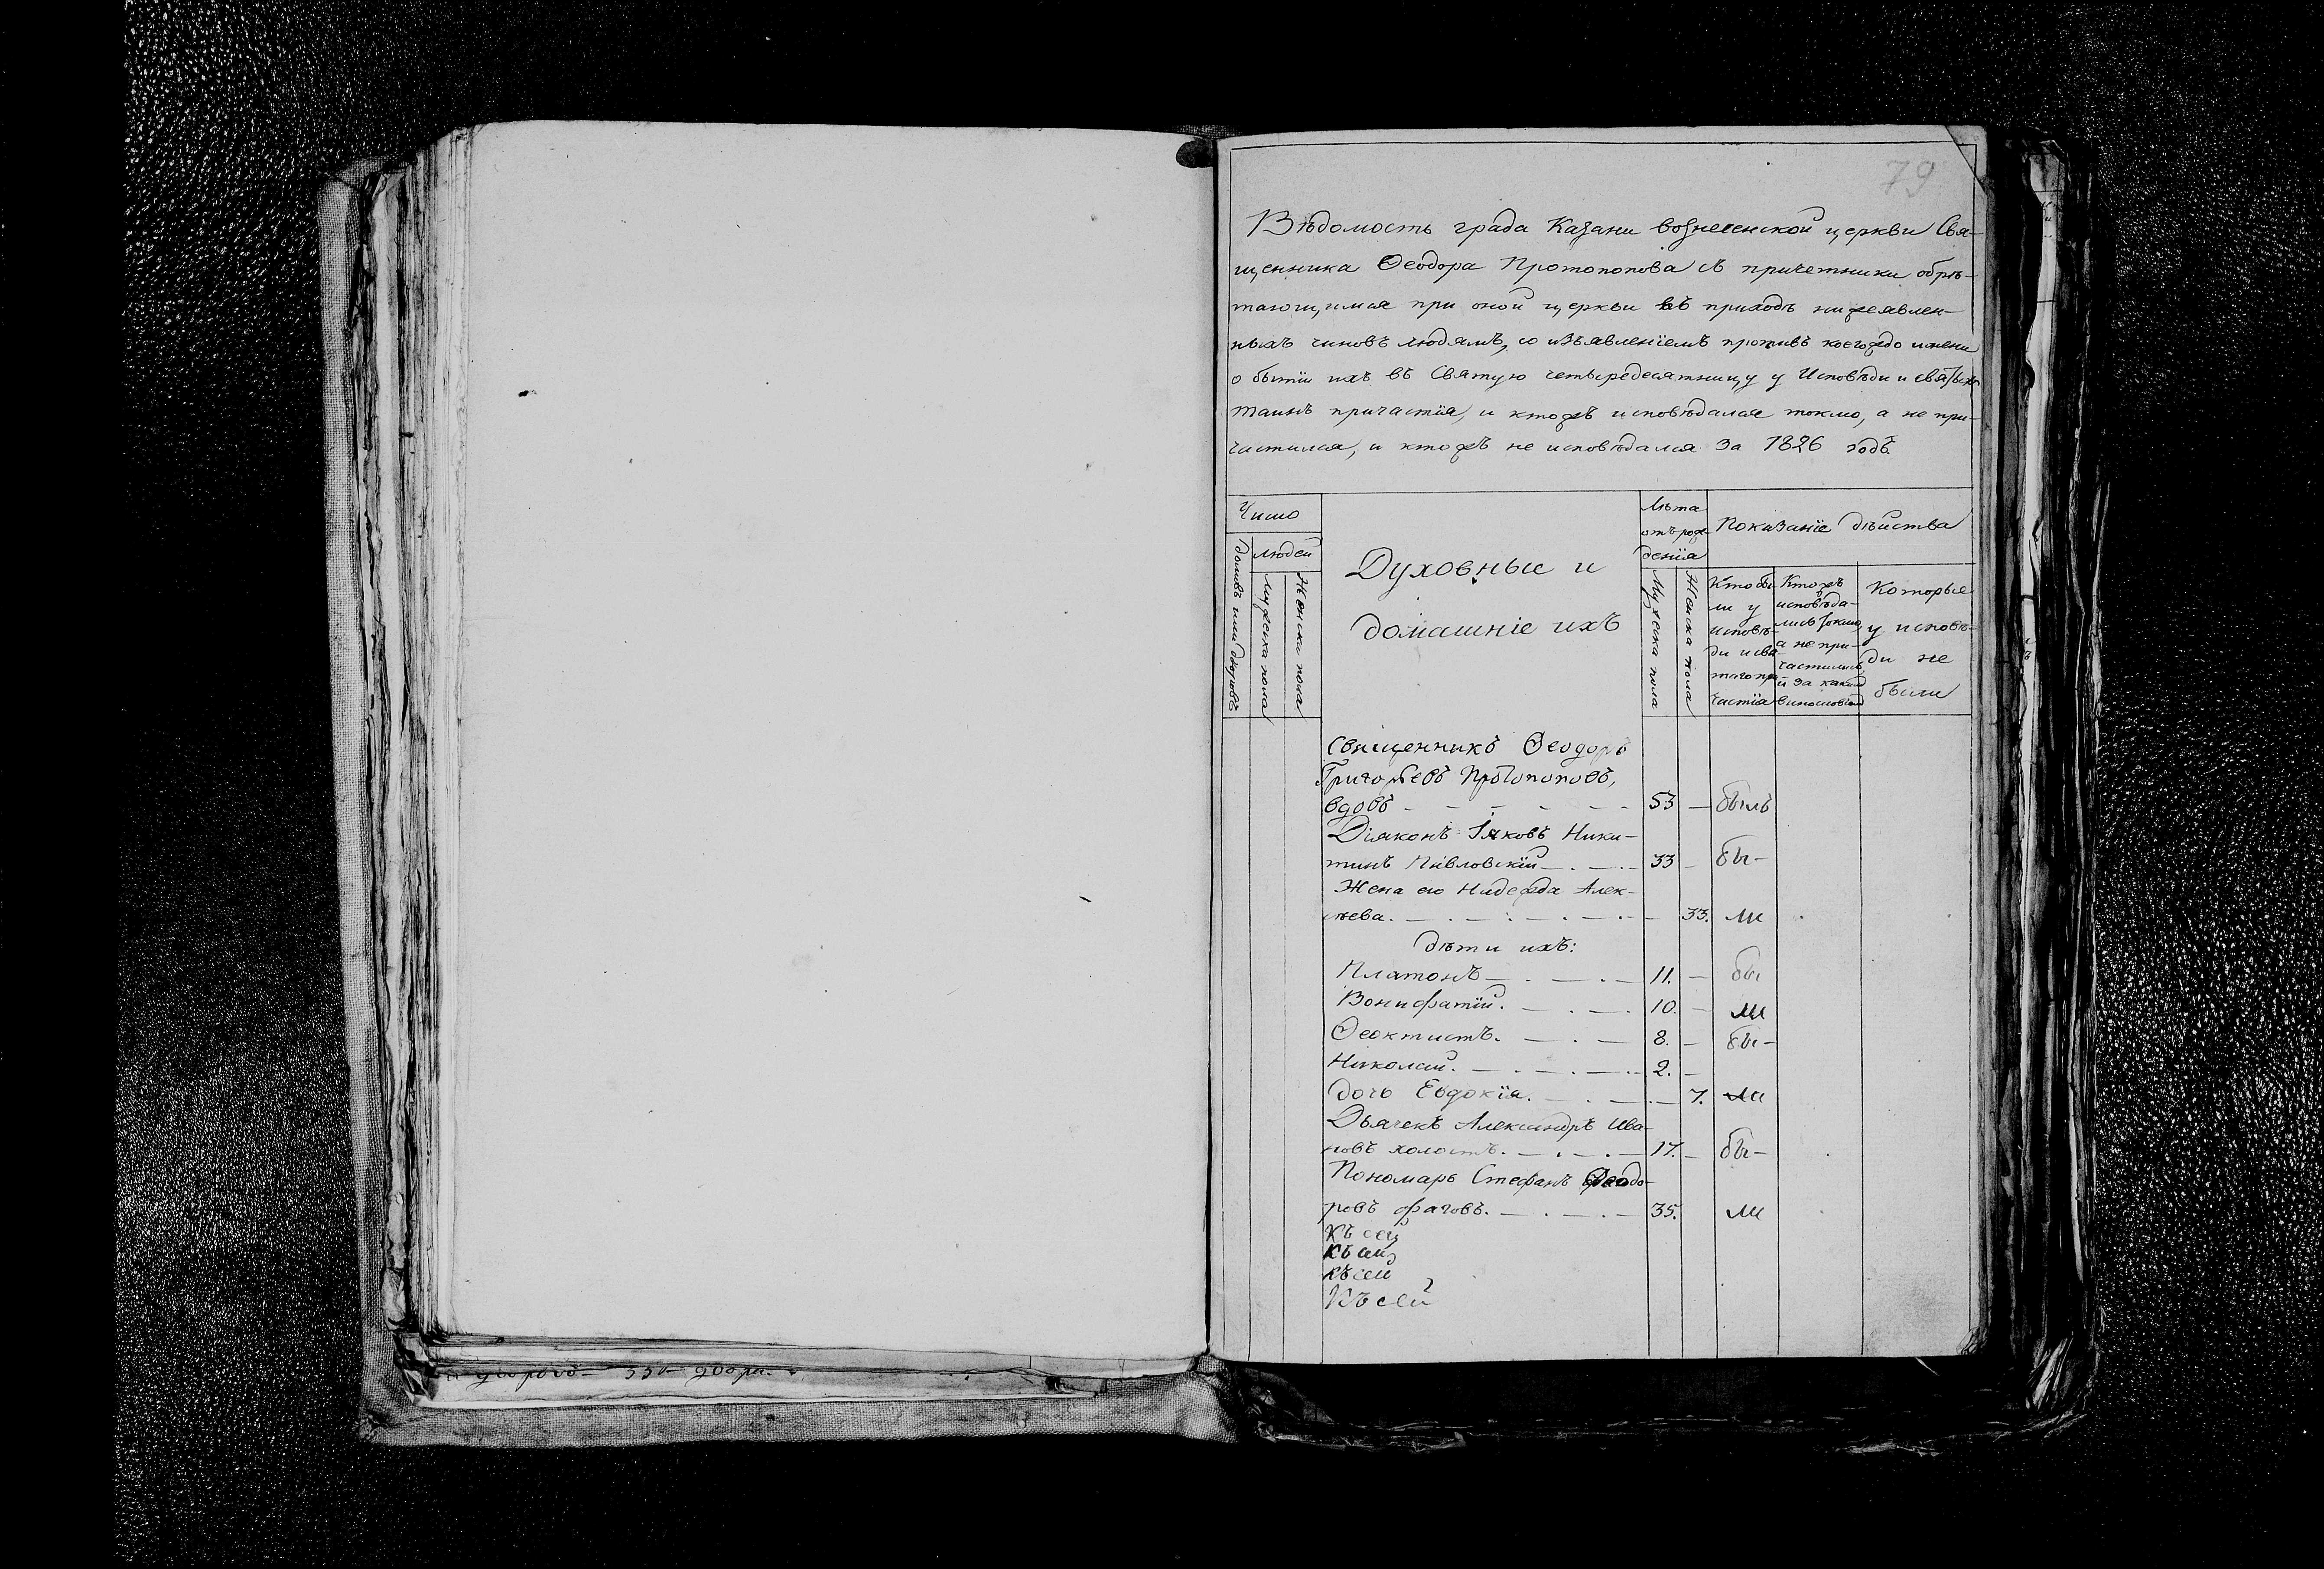 79
Вѣдомость града Казани вознесенской церкви Свя-
щенника Ѳеодора Протопопова съ причетники обрѣ-
тающимся при оной церкви въ приходѣ нижеявлен-
ныхъ чиновъ людямъ, со изъявленіемъ противъ коегождо имени
о бытіи ихъ въ Святую четыредесятницу у Исповѣди и святыхъ
таинъ причастія, и ктожъ исповѣдался токмо, а не при-
частился, и ктожъ не исповѣдался за 1826 годъ.
Число
домовъ или дворовъ
людей
Мужеска пола
Женска пола
Духовные и
домашніе ихъ
Лѣта
отъ рож-
денія
Мужеска пола
Женска пола
Показаніе дѣйства
Кто бы-
ли у
исповѣ-
ди и свя-
таго при-
частія
Ктожъ
исповѣда-
лись токмо,
а не при-
частились
и за какимъ
винословіемъ
Которые
у исповѣ-
ди не
были
Священникъ Ѳеодоръ
Григорьевъ Протопоповъ,
вдовъ - - - - - 53 — былъ
Діаконъ Іяковъ Ники-
тинъ Павловскій — . — . — 33 — бы-
Жена его Надежда Алек-
сѣева. — . — . — . — . — 33. ли
дѣти ихъ:
Платонъ — . — . — 11. — бы
Вонифатій. — . — . 10. — ли
Ѳеоктистъ. — . — 8. — бы-
Николай. — . — . — . — 2. —
дочь Евдокія. — . — . — 7. ли
Дьячекъ Александръ Ива-
новъ холостъ. — . — . — 17. — бы-
Пономарь Стефанъ Ѳеодо-
ровъ фаговъ. — . — . — 35. ли
Къ сей
къ сей
къ сей
Къ сей